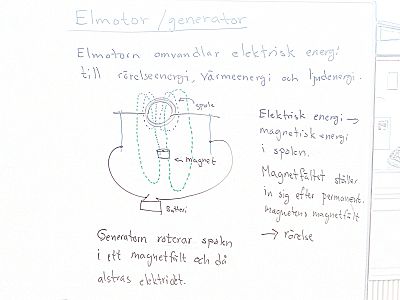 Elmotor / generator
Elmotorn omvandlar elektrisk energi
till rörelseenergi, värmeenergi och ljudenergi.
spole
magnet
Batteri
Elektrisk energi →
magnetisk energi
i spolen.
Magnetfältet ställer
in sig efter permanent-
magnetens magnetfält
→ rörelse
Generatorn roterar spolen
i ett magnetfält och då
alstras elektricitet.